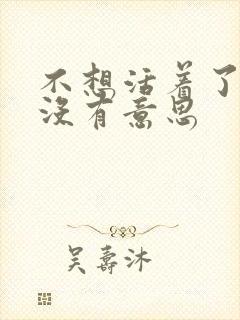 不想活着了
没有意思
吴寿沐